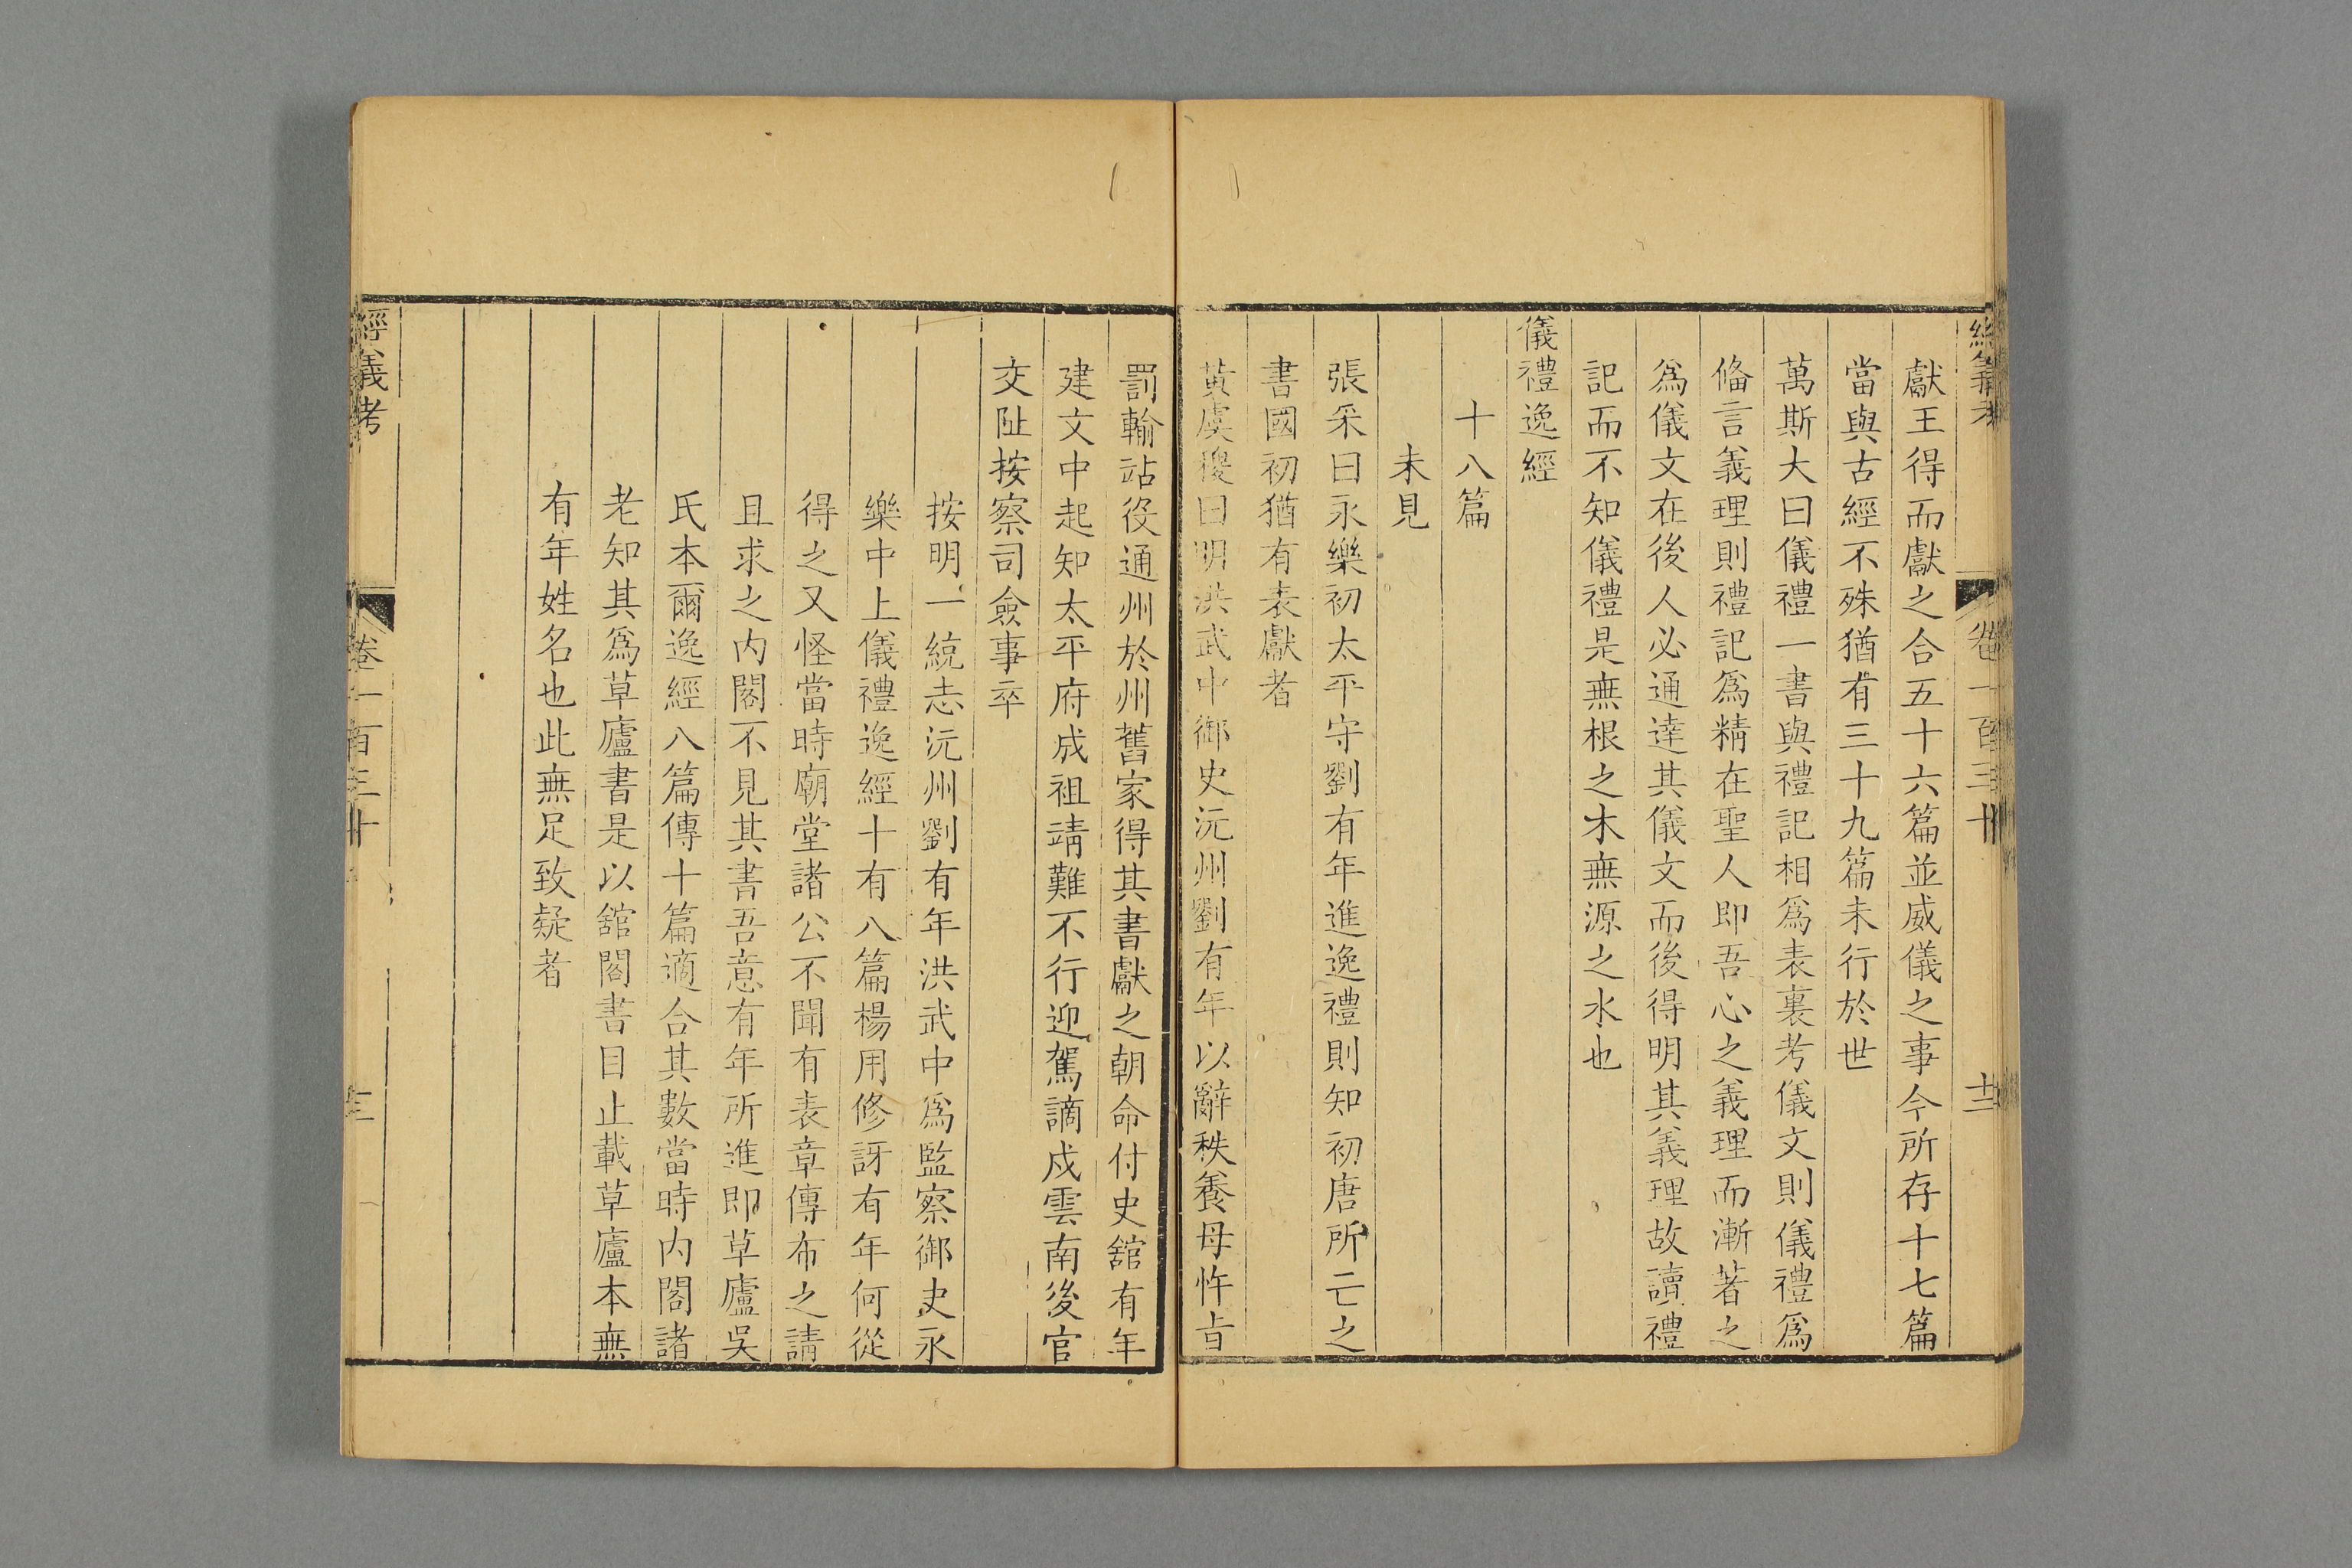 獻王得而獻之合五十六篇並威儀之事今所存十七篇
當與古經不殊猶有三十九篇未行於世
萬斯大曰儀禮一書與禮記相爲表裏考儀文則儀禮爲
俻言義理則禮記爲精在聖人即吾心之義理而漸著之
爲儀文在後人必通達其儀文而後得明其義理故讀禮
記而不知儀禮是無根之木無源之水也
儀禮逸經
十八篇
未見
張采曰永樂初太平守劉有年進逸禮則知初唐所亡之
書國初猶有表獻者
黃虞稷曰明洪武中御史沅州劉有年以辭秩養母忤旨
罰輸站役通州於州舊家得其書獻之朝命付史舘有年
建文中起知太平府成祖靖難不行迎駕謫戍雲南後官
交阯按察司僉事卒
按明一統志沅州劉有年洪武中爲監察御史永
樂中上儀禮逸經十有八篇楊用修訝有年何從
得之又怪當時廟堂諸公不聞有表章傳布之請
且求之内閣不見其書吾意有年所進即草廬吳
氏本爾逸經八篇傳十篇適合其數當時内閣諸
老知其爲草廬書是以舘閣書目止載草廬本無
有年姓名也此無足致疑者
經義考 卷一百三十